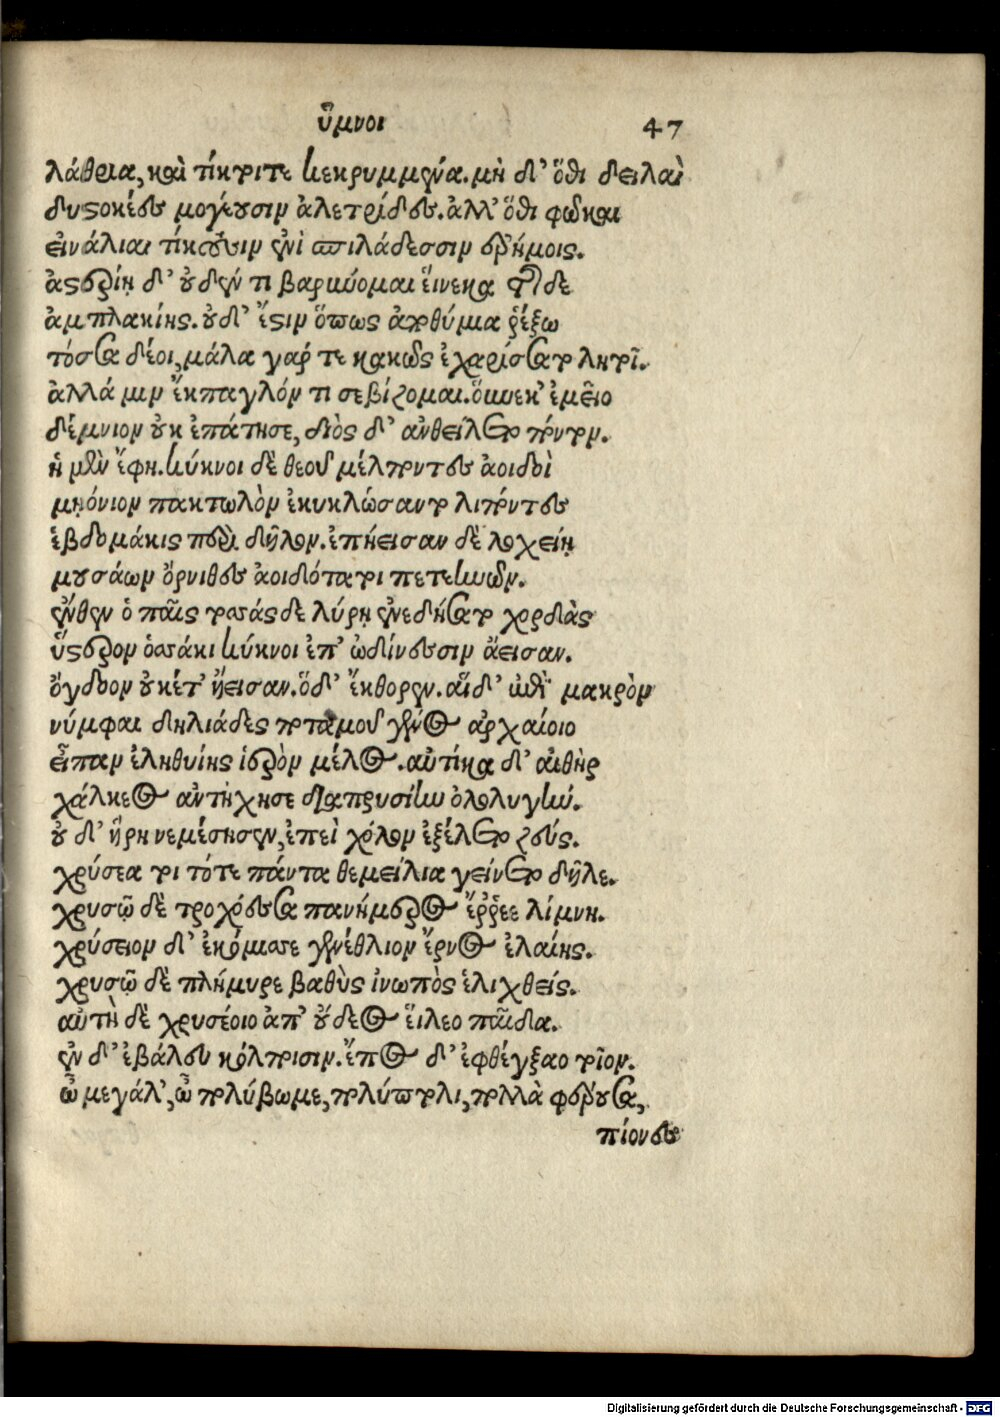 ὕμνοι 47
λάθρια, καὶ τίκτοιτε κεκρυμμένα. μὴ δ' ὅθι δειλαὶ
δυστοκέες μογέουσιν ἀλετρίδες. ἀλλ' ὅθι φῶκαι
εἰνάλιαι τίκτουσιν ἐνὶ σπιλάδεσσιν ἐρήμοις.
ἀστερίῃ δ' οὐδέν τι βαρύνομαι εἵνεκα τῆσδε
ἀμπλακίης. οὐδ' ἔστιν ὅπως ἀποθύμια ῥέξω
τόσσα δέοι, μάλα γάρ τε κακῶς ἐχαρίσσατο λητοῖ.
ἀλλά μιν ἔκπαγλόν τι σεβίζομαι. οὕνεκ' ἐμεῖο
δέμνιον οὐκ ἐπάτησε, διὸς δ' ἀνθείλετο πόντον.
ἡ μὲν ἔφη. κύκνοι δὲ θεοῦ μέλποντες ἀοιδοὶ
μῃόνιον πακτωλὸν ἐκυκλώσαντο λιπόντες
ἑβδομάκις περὶ δῆλον. ἐπήεισαν δὲ λοχείῃ
μουσάων ὄρνιθες ἀοιδότατοι πετεηνῶν.
ἔνθεν ὁ παῖς τοσσάςδε λύρῃ ἐνεδήσατο χορδὰς
ὕστερον ὁσσάκι κύκνοι ἐπ' ὠδίνεσσιν ἄεισαν.
ὄγδοον οὐκέτ' ἤεισαν. ὅδ' ἔκθορεν. αἵδ' ἐπὶ μακρὸν
νύμφαι δηλιάδες ποταμοῦ γένος ἀρχαίοιο
εἶπαν ἐληθυίης ἱερὸν μέλος. αὐτίκα δ' αἰθὴρ
χάλκεος ἀντήχησε διαπρυσίην ὀλολυγήν.
οὐ δ' ἥρη νεμέσησεν, ἐπεὶ χόλον ἐξέλετο ζεύς.
χρύσεα τοι τότε πάντα θεμείλια γείνετο δῆλε.
χρυσῷ δὲ τροχόεσσα πανήμερος ἔῤῥεε λίμνη.
χρύσειον δ' ἐκόμισσε γενέθλιον ἔρνος ἐλαίης.
χρυσῷ δὲ πλήμυρε βαθὺς ἰνωπὸς ἑλιχθείς.
αὐτὴ δὲ χρυσέοιο ἀπ' οὔδεος εἵλεο παῖδα.
ἐν δ' ἐβάλευ κόλποισιν. ἔπος δ' ἐφθέγξαο τοῖον.
ὦ μεγάλ', ὦ πολύβωμε, πολύπτολι, πολλὰ φέρουσα,
πίονες
Digitalisierung gefördert durch die Deutsche Forschungsgemeinschaft - DFG